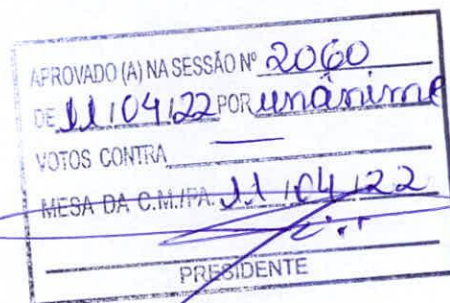 APROVADO (A) NA SESSÃO Nº 2060
DE 11/04/22 POR unânime
VOTOS CONTRA —
MESA DA C.M./PA. 11/04/22
PRESIDENTE